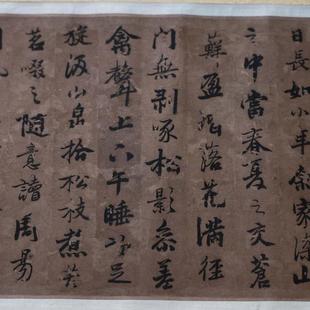 日長如小年余家深山
之中當春夏之交蒼
蘚盈堦落花滿徑
门無剥啄松影參差
禽聲上下午睡初足
旋汲山泉拾松枝煮苦
茗啜之隨意讀周易